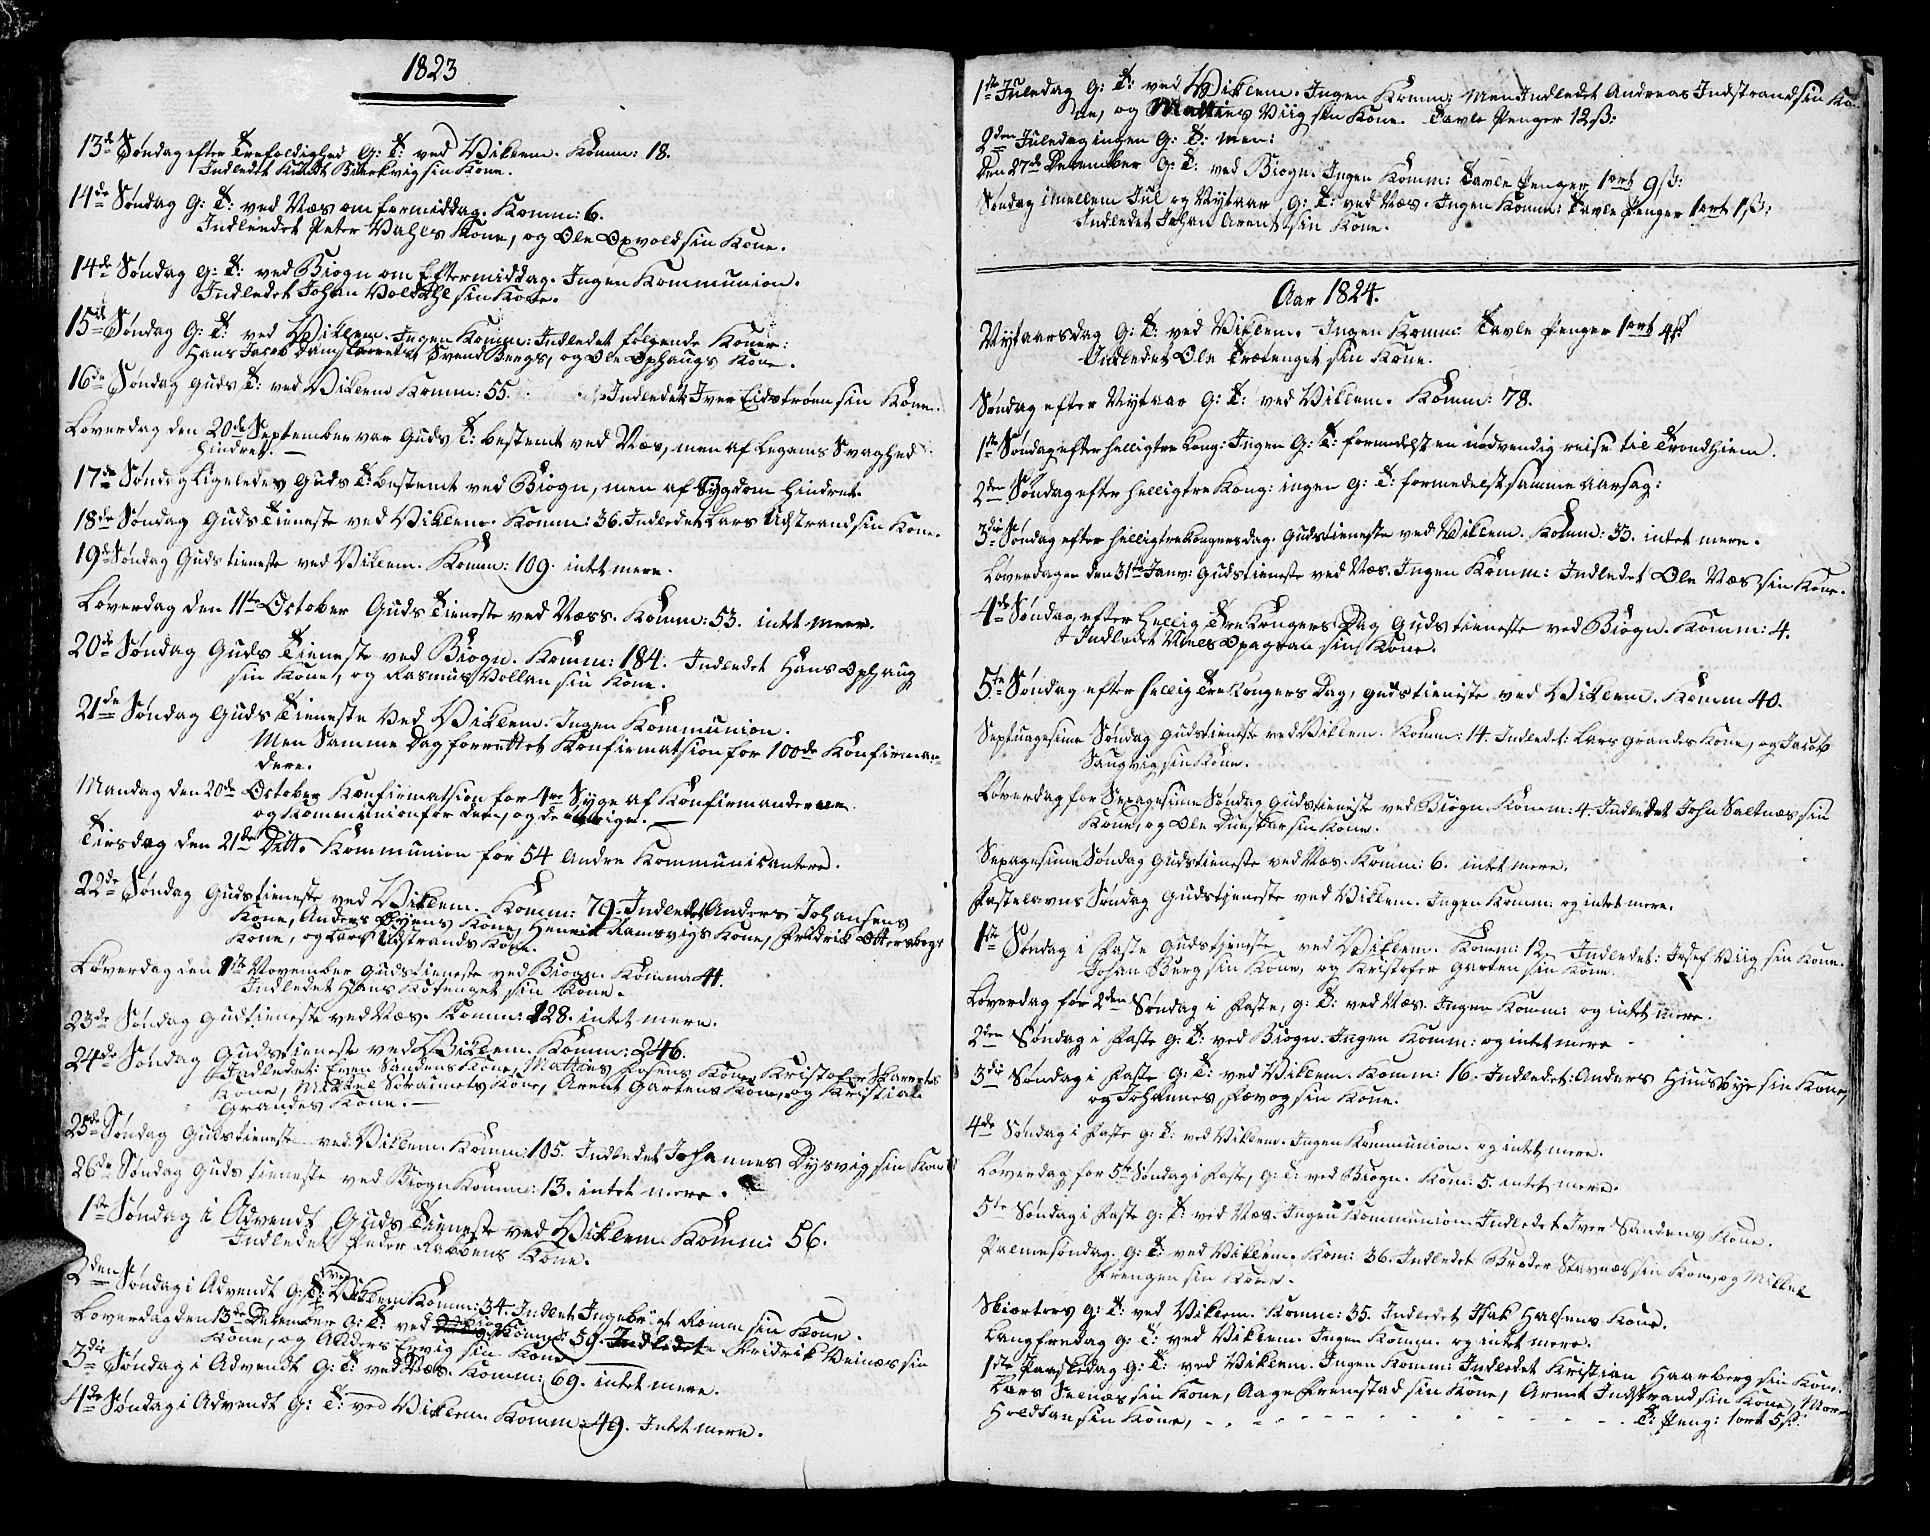 1823
13de Søndag efter Trefoldighed G: T: ved Viklem. Komm: 18.
Indledet Knudt Bierkvig sin Kone.
14de Søndag G: T: ved Næs om formiddag. Komm: 6.
Indleedet Peter Dahls Kone, og Ole Opvold sin Kone.
14de Søndag G: T: ved Biogn om Eftermiddag. Ingen Kommunion.
Indledet Johan Voldahl sin Kone.
15de Søndag G: T: ved Viklem. Ingen Komm: Indledet følgende Koner:
Hans Jacob Dams Svend Bergs, og Ole Ophaugs Kone.
16de Søndag Guds T: ved Viklem Komm: 55. Indledet Iver Eidstrøen sin Kone.
Loverdag den 20de September var Guds T: bestemt ved Næs, men af Legems Svaghed
Hindret. —
17de Søndag Ligeledes Guds T: bestemt ved Biogn, men af Sygdom Hindret.
18de Søndag Guds Tieneste ved Viklem. Komm: 36. Indledet Lars Udstrand sin Kone.
19de Søndag Guds tieneste ved Viklem. Komm: 109. intet mere.
Løverdag den 11te October Guds Tieneste ved Næss. Komm: 53. intet meer.
20de Søndag Guds Tieneste ved Biogn. Komm: 184. Indledet Hans Ophaug
sin Kone, og Rasmus Vollan sin Kone.
21de Søndag Guds Tieneste Ved Viklem: Ingen Kommunion.
Men Samme Dag forrettet Konfirmatsion for 100de Konfirman-
dere.
Mandag den 20de October Konfirmatsion for 4re Syge af Konfirmanderne
og Kommunion for dem, og de øvrige. —
Tirsdag den 21de Ditto Kommunion for 54 Andre Kommunicantere.
22de Søndag Gudstieneste ved Viklem. Komm: 79. Indledet Anders Johansens
Kone, Anders Byens Kone, Henrik Ramsvigs Kone, Fridrik Ottersbogs
Kone, og Lars Udstrands Kone.
Løverdag den 1te November Gudstieneste ved Biogn. Komm 41.
Indledet Hans Kotenget sin Kone.
23de Søndag Gudtieneste ved Næs. Komm: 128. intet mere.
24de Søndag Gudstieneste ved Viklem. Komm: 246.
Indledet: Even Sandens Kone, Mathies Kone, Kristofer
Kone, Mikkel Kone, Arent Gartens Kone, og Kristian
Grandes Kone. —
25de Søndag Gudstieneste ved Viklem. Komm: 105. Indledet Johannes Dysvig sin Kone
26de Søndag Guds tieneste ved Biogn Komm: 13. intet mere.
1te Søndag i Advendt Guds Tieneste ved Viklem Komm: 56.
Indledet Peder Rabbens Kone.
2den Søndag i Advendt G: T: ved Viklem Komm: 34. Indlet Ingebrigt Romm sin Kone.
Loverdag den 13de December G: T: ved Biogn Komm: 59. Indledet Fridrik Veinæs sin
Kone, og Anders Ervig sin Kone
3die Søndag i Advendt G: T: ved Næs. Komm: 69. intet mere.
4de Søndag i Advendt G: T: ved Viklem. Komm: 49. Intet mere.
1ste Juledag G: T: ved Viklem. Ingen Komm: Men Indledet Andreas Indstrand sin Ko-
ne, og Mathies Viig sin Kone. Tavle Penger 12ß:
2den Juledag ingen G: T: men:
Den 27de December G: T: ved Biogn. Ingen Komm: Tavle Penger 1ort 9ß:
Søndag imellem Jul og Nytaar G: T: ved Næs. Ingen Komm: Tavle Penger 1ort 1ß:
Indledet Johan Arent sin Kone.
Aar 1824.
Nytaarsdag G: T: ved Viklem. Ingen Komm: Tavle Penger 1ort 4ß
Indledet Ole Trætenget sin Kone.
Søndag efter Nytaar G: T: ved Viklem. Komm: 78.
1te Søndag efter helligtre Kong: Ingen G: T: formedelst en nødvendig reise til Trondhiem.
2den Søndag efter helligtre Kong: ingen G: T: formedelst samme Aarsag:
3die Søndag efter helligtrekongersdag. Gudstieneste ved Viklem. Komm: 33. intet mere.
Loverdagen den 31te Janv: Gudstieneste ved Næs. Ingen Komm: Indledet Ole Næs sin Kone.
4de Søndag efter Hellig Tre Kongers Dag Guds tieneste ved Biogn. Komm: 4.
Indledet Niels Opagran sin Kone.
5te Søndag efter hellig Tre Kongers Dag, Gudstieniste ved Viklem. Komm 40.
Septuagesime Søndag Gudstieneste ved Viklem. Komm: 14. Indledet: Lars Grandes Kone, og Jacob
Saugvig sin Kone.
Løverdag for Sexagesime Søndag Gudstienist ved Biogn. Komm: 4. Indledet John Saltnæs sin
Kone, og Ole sin Kone.
Sexagesime Søndag Gudstieneste ved Næs. Komm: 6. intet mere.
Fastelavns Søndag Gudstjeneste ved Viklem. Ingen Komm: og intet mere.
1te Søndag i Faste Gudstjeneste ved Viklem. Komm: 12. Indledet: Josef Viig sin Kone.
Johan Burg sin Kone, og Kristofer Garten sin Kone.
Loverdag før 2den Søndag i Faste, G: T: ved Næs. Ingen Komm: og intet mere.
2den Søndag i Faste G: T: ved Biogn. Ingen Komm: og intet mere
3die Søndag i Faste G: T: ved Viklem. Komm: 16. Indledet: Anders Huusbye sin Kone,
og Johannes Fævog sin Kone.
4de Søndag i Faste G: T: ved Viklem. Ingen Kommunion. og intet mere.
Løverdag for 5te Søndag i Faste, G: T: ved Biogn. Kom: 5. intet mere.
5te Søndag i Faste G: T: ved Næs. Ingen Kommunion. Indledet Iver Sandens Kone.
Palmesondag. G: T: ved Viklem. Kom: 36. Indledet Stavnæs sin Kone, og Mikkel
sin Kone.
Skiærtors G: T: ved Viklem. Komm: 35. Indledet Isak Halsens Kone.
Langfredag G: T: ved Viklem. Ingen Komm. og intet mere.
1ste Paaskedag G: T: ved Viklem. Ingen Komm: Indledet Kristian Haarberg sin Kone.
Lars Selnæs sin Kone, Aage Fremstad sin Kone, Arent Indstrand sin Kone, Mor-
Holdtan sin Kone, - - - - - - - - T: Peng: 1ort 5ß: